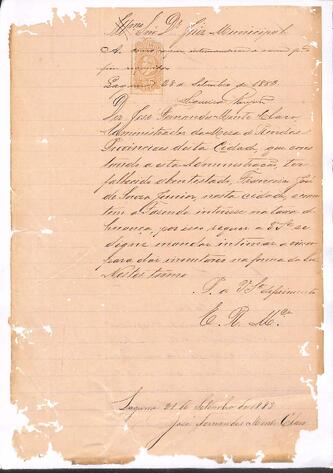 Illmo Snr Dr Juiz Municipal
A.
Laguna 28 de Setembro de 1883
Siqueira
Diz José Fernandes Monte Claro,
Administrador da Mesa de Rendas
Provinciaes desta Cidade, que cons
tando a esta Administração, ter
fallecido abintestado, Francisco José
de Souza Junior, nesta cidade, e como
tem a Fazenda interesse na taxa de
herança, por isso, requer a V. Sa se
digne mandar intimar
para dar inventario na forma da Lei
Nestes termos
P. a V. Sa deferimento
E. R. Mce
Laguna 21 de Setembro de 1883
José Fernandes Monte Claro